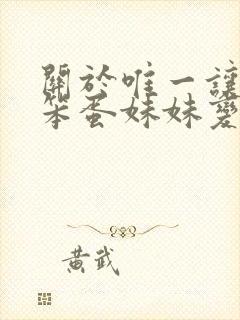 關於唯一讓
笨蛋妹妹變
黃武